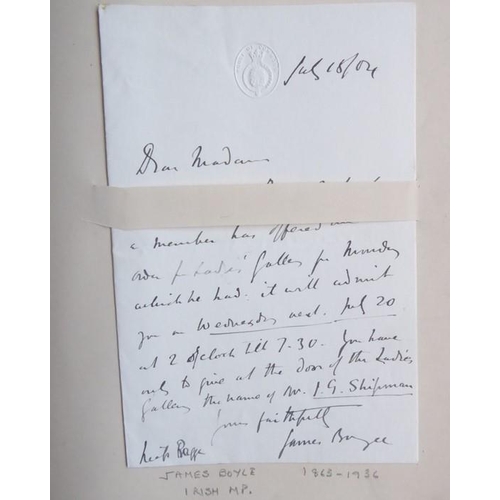 July 18/04
Dear Madam
a member has offered
order for Ladies' Gallery for Monday
which he had. it will admit
you on Wednesday next. July 20
at 2 o'clock till 7-30. You have
only to give at the door of the Ladies
Gallery the name of Mr. J. G. Shipman
yours faithfully
James
JAMES BOYLE 1863-1936
IRISH MP.